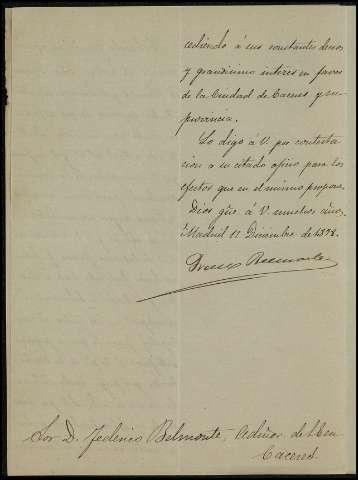 cediendo á sus constantes deseos
y grandísimo interes en favor
de la Ciudad de Caceres y su
provincia.
Lo digo á V. por contesta
cion á su citado oficio para los
efectos que en el mismo propone.
Dios gũe á V. muchos años.
Madrid 11 Diciembre de 1898.
Belmonte
Sor. D. Federico Belmonte, de
Caceres